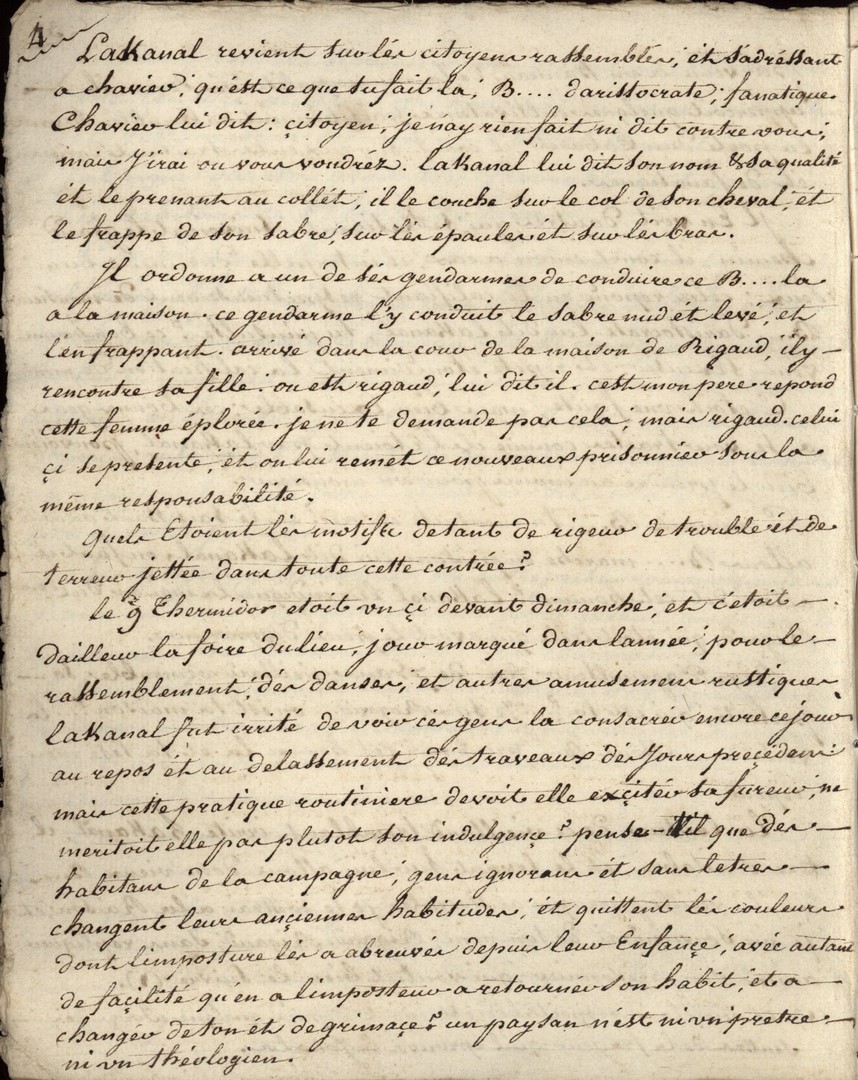 4
Lakanal revient sur lés citoyens rassemblés; ét s'adréssant
a charier; qu'est ce que tu fait la; B.... d'aristocrate; fanatique.
Charier lui dit: çitoyen; je n'ay rien fait ni dit contre vous;
mais J'irai ou vous voudréz. lakanal lui dit son nom & sa qualité
ét le prenant au collét; il le couche sur le col de son cheval, ét
le frappe de son sabre, sur lés épaules ét sur lés bras.
Il ordonne a un de sés gendarmes de conduire ce B.... la
a la maison. ce gendarme l'y conduit le sabre nud ét levé, et
l'en frappant. arrivé dans la cour de la maison de Rigaud, il y
rencontre sa fille. ou est rigaud, lui dit il. c'est mon pere repond
cette femme éplorée. je ne te demande pas cela; mais rigaud. celui
çi se presente; ét on lui remét ce nouveaux prisonnier sous la
même responsabilité.
Quels Etoient lés motifs de tant de rigeur de trouble ét de
terreur jettée dans toute cette contrée?
le 9 Thermidor etoit un çi devant dimanche; et c'etoit
d'ailleur la foire du lieu; jour marqué dans l'année; pour le
rassemblement; dés danses; et autres amusemens rustiques
lakanal fut irrité de voir cés gens la consacrér encore ce jour
au repos ét au delassement dés traveaux dés Jours preçédens:
mais cette pratique routiniere devoit elle exçitér sa fureur; ne
meritoit elle pas plutot son indulgençe? pense-t'il que dés
habitans de la campagne; gens ignorans ét sans letres
changent leurs ançiennes habitudes; ét quittent lés couleurs
dont l'imposture lés a abreuvés depuis leur Enfançe; avéc autant
de façilité qu'en a l'imposteur a retournér son habit; ét a
changér de ton ét de grimaçe? un paysan n'est ni un pretre
ni un théologien.